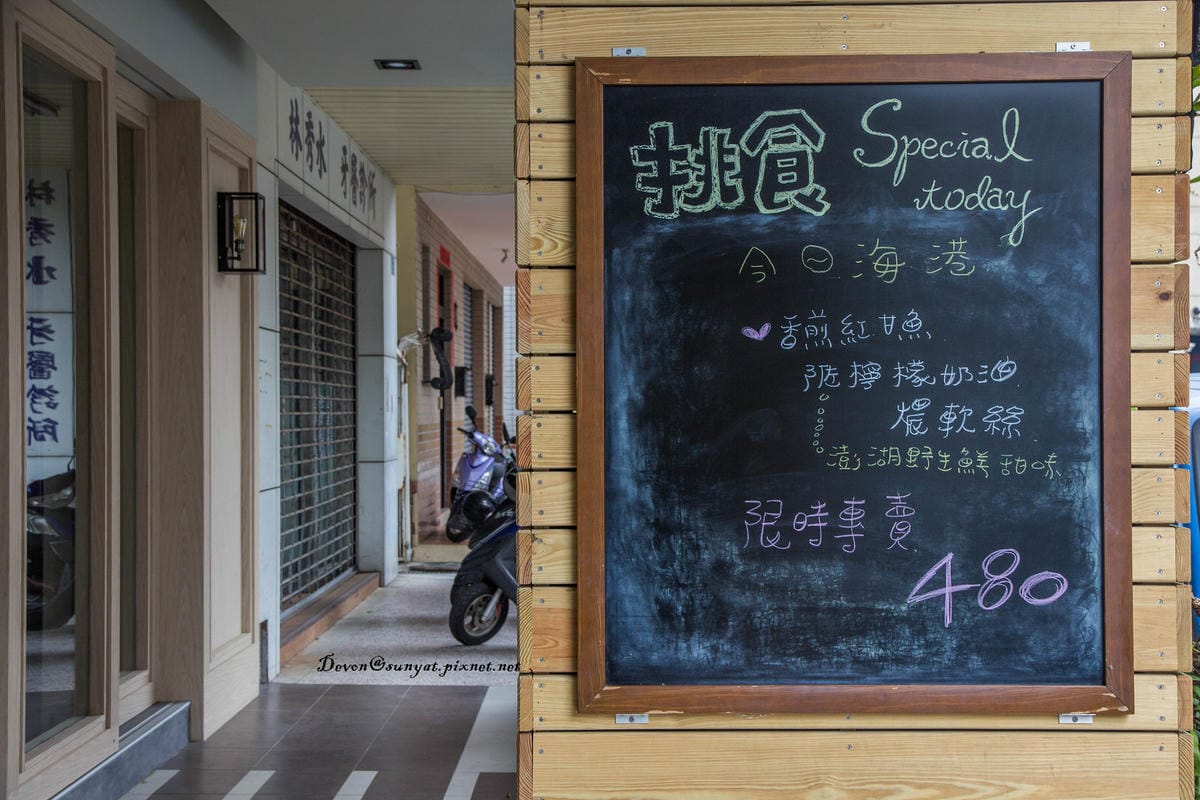 林秀水 牙醫診所
林秀水 牙醫診所
挑食 Special today
今日海港
香煎紅甘魚
陀檸檬奶油
檂軟絲
澎湖野生鮮甜味
限時專賣
480
Devon@sunyat.pixnet.net